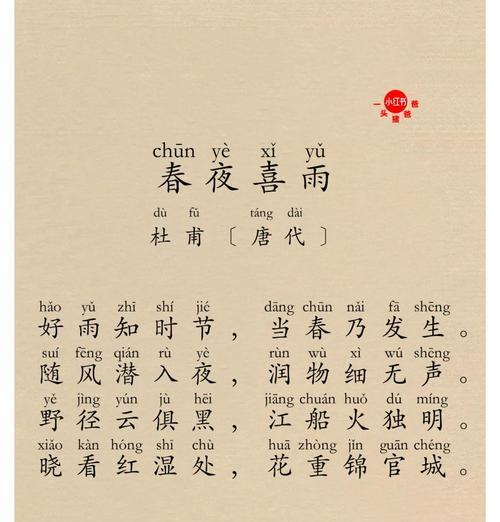 小红书
一头猪爸爸
chūn yè xǐ yǔ
春夜喜雨
dù fǔ táng dài
杜甫〔唐代〕
hǎo yǔ zhī shí jié dāng chūn nǎi fā shēng
好雨知时节，当春乃发生。
suí fēng qián rù yè rùn wù xì wú shēng
随风潜入夜，润物细无声。
yě jìng yún jù hēi jiāng chuán huǒ dú míng
野径云俱黑，江船火独明。
xiǎo kàn hóng shī chù huā zhòng jǐn guān chéng
晓看红湿处，花重锦官城。